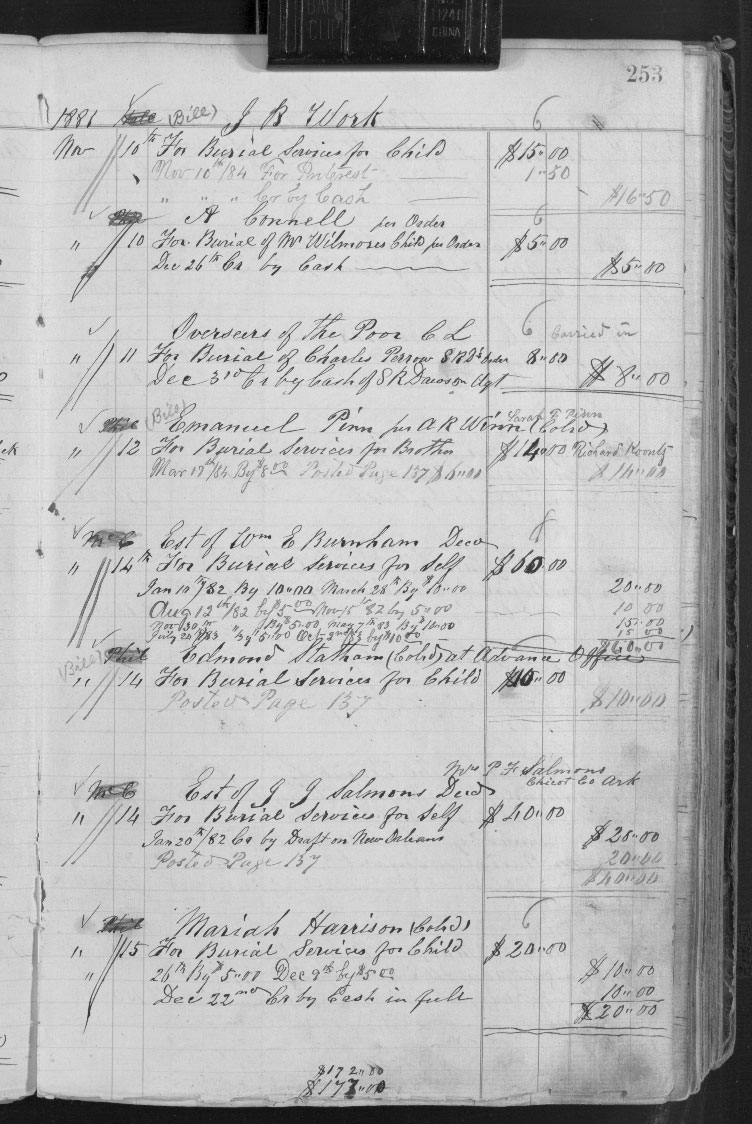 253
1881 (Bill) J B Work 6 "
Nov 10th For Burial Services for Child $15"00
Nov 10th/84 For Interest 1"50
" " " Cr by Cash $16"50
A Connell per Order 6
" 10 For Burial of Mr Wilmores Child per Order $5"00
Dec 26th Cr by Cash $5"00
Overseers of the Poor C L 6 Carried in
" 11 For Burial of Charles Perrow S R D's Order 8"00
Dec 3rd Cr by Cash of S R Dawson Agt $8"00
(Bill) Emanuel Pinn per A R Winn (Cold) Sarah F Pinn
" 12 For Burial Services for Brother $14"00 Richard Koontz
Mar 17th/84 By $8"00 Posted Page 137 $6"00 $14"00
McC Est of Wm E Burnham Decd
" 14th For Burial Services for Self $60"00
Jan 10th/82 By 10"00 March 28th By $10"00 20"00
Aug 12th/82 by $5"00 Nov 15th 82 by 5"00 10"00
Nov 30th " By $5"00 May 7th 83 By $10"00 15"00
July 20th/83 By $5"00 Oct 3rd 83 by $10"00 15"00
$60"00
(Bill) Phil Edmond Statham (Cold) at Advance Office
" 14 For Burial Services for Child $10"00
Posted Page 137 $10"00
Mrs P F Salmons
Chicot Co Ark
McC Est of J J Salmons Decd
" 14 For Burial Services for Self $40"00
Jan 20th/82 Cr by Draft on New Orleans $20"00
Posted Page 137 20"00
$40"00
Phil Mariah Harrison (Cold) 6
" 15 For Burial Services for Child $20"00
" 26th By $5"00 Dec 9th by $5"00 $10"00
Dec 22nd Cr by Cash in full 10"00
$20"00
$172"00
$177"00